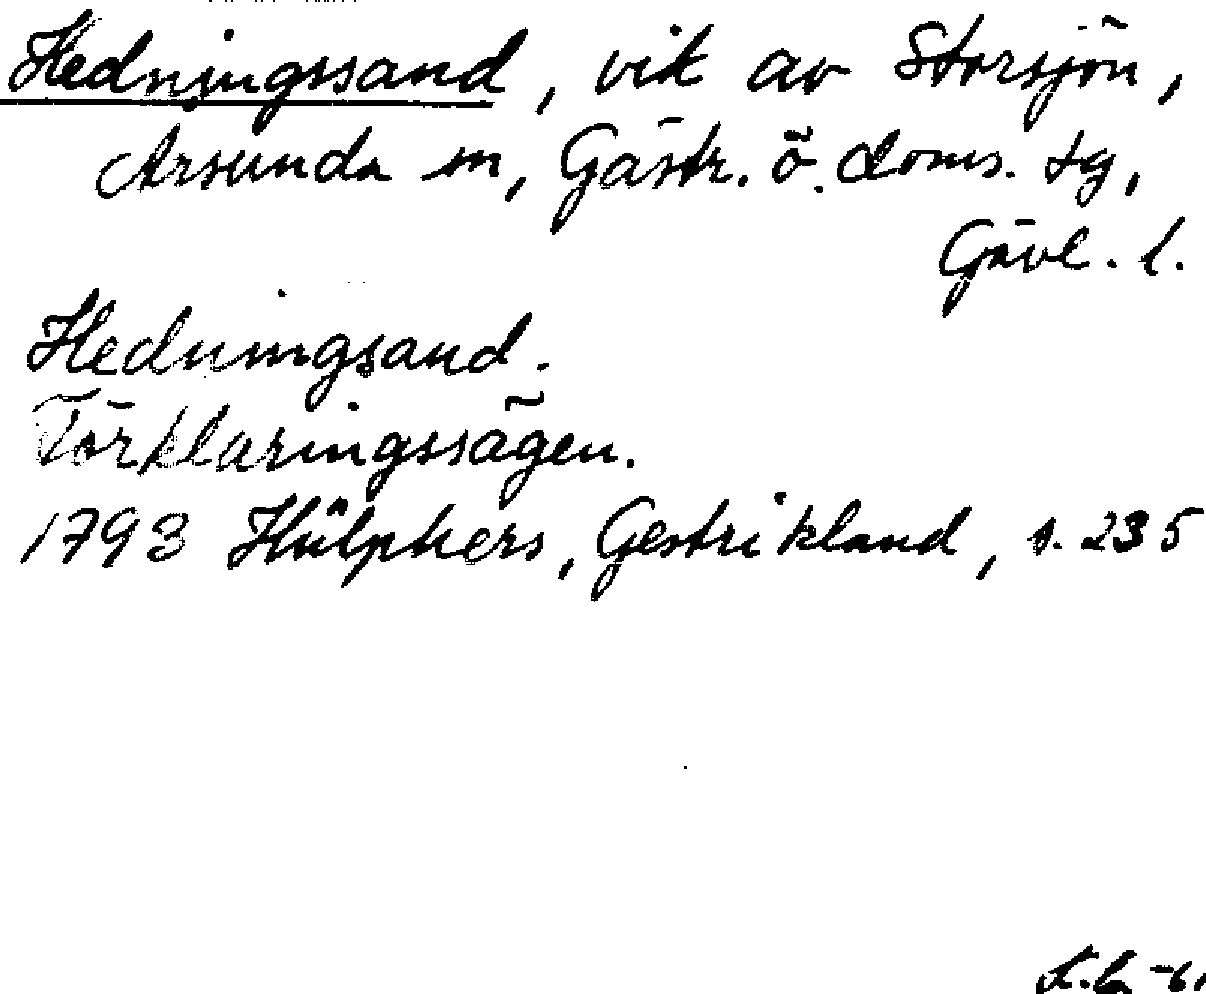 Hedningssand, vik av Storsjön,
Årsunda sn, Gästr. ö. doms. tg,
Gävl. l.
Hedningsand.
Förklaringssägen.
1793 Hülphers, Gestrikland, s. 235